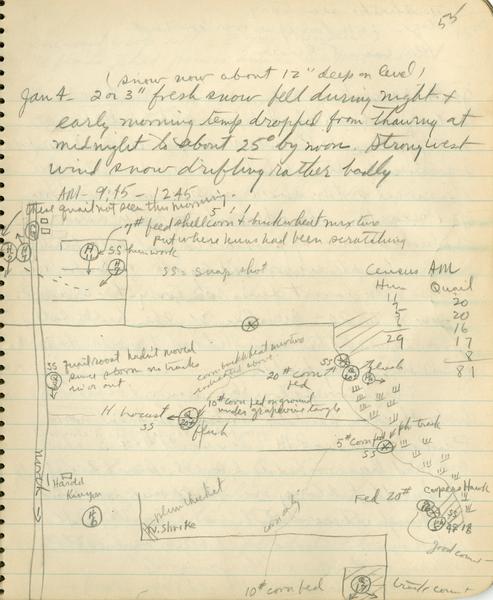 55
(snow now about 12" deep on level)
Jan 4 - 2 or 3" fresh snow fell during night &
early morning temp dropped from thawing at
midnight to about 25° by noon. Strong west
wind snow drifting rather badly
AM - 9:45 - 1245
these quail not seen this morning.
# feed shell corn & buckwheat mixture
put where huns had been scratching
SS hun work
SS = snap shot
Census AM
Hun Quail
11 20
20
16
29 17
8
81
quail roost hadn't moved
since storm no tracks
in or out
SS
corn buckwheat mixture
20# corn
fed
SS
flush
10# corn fed on ground
under grapevine tangle
H locust
SS
flush
5# corn fed
ph track
SS
North
Harold
Kinyon
H
6
plum thicket
N. Shrike
corn only
Fed 20#
Coopers Hawk
SS
good count
10# corn fed
track count